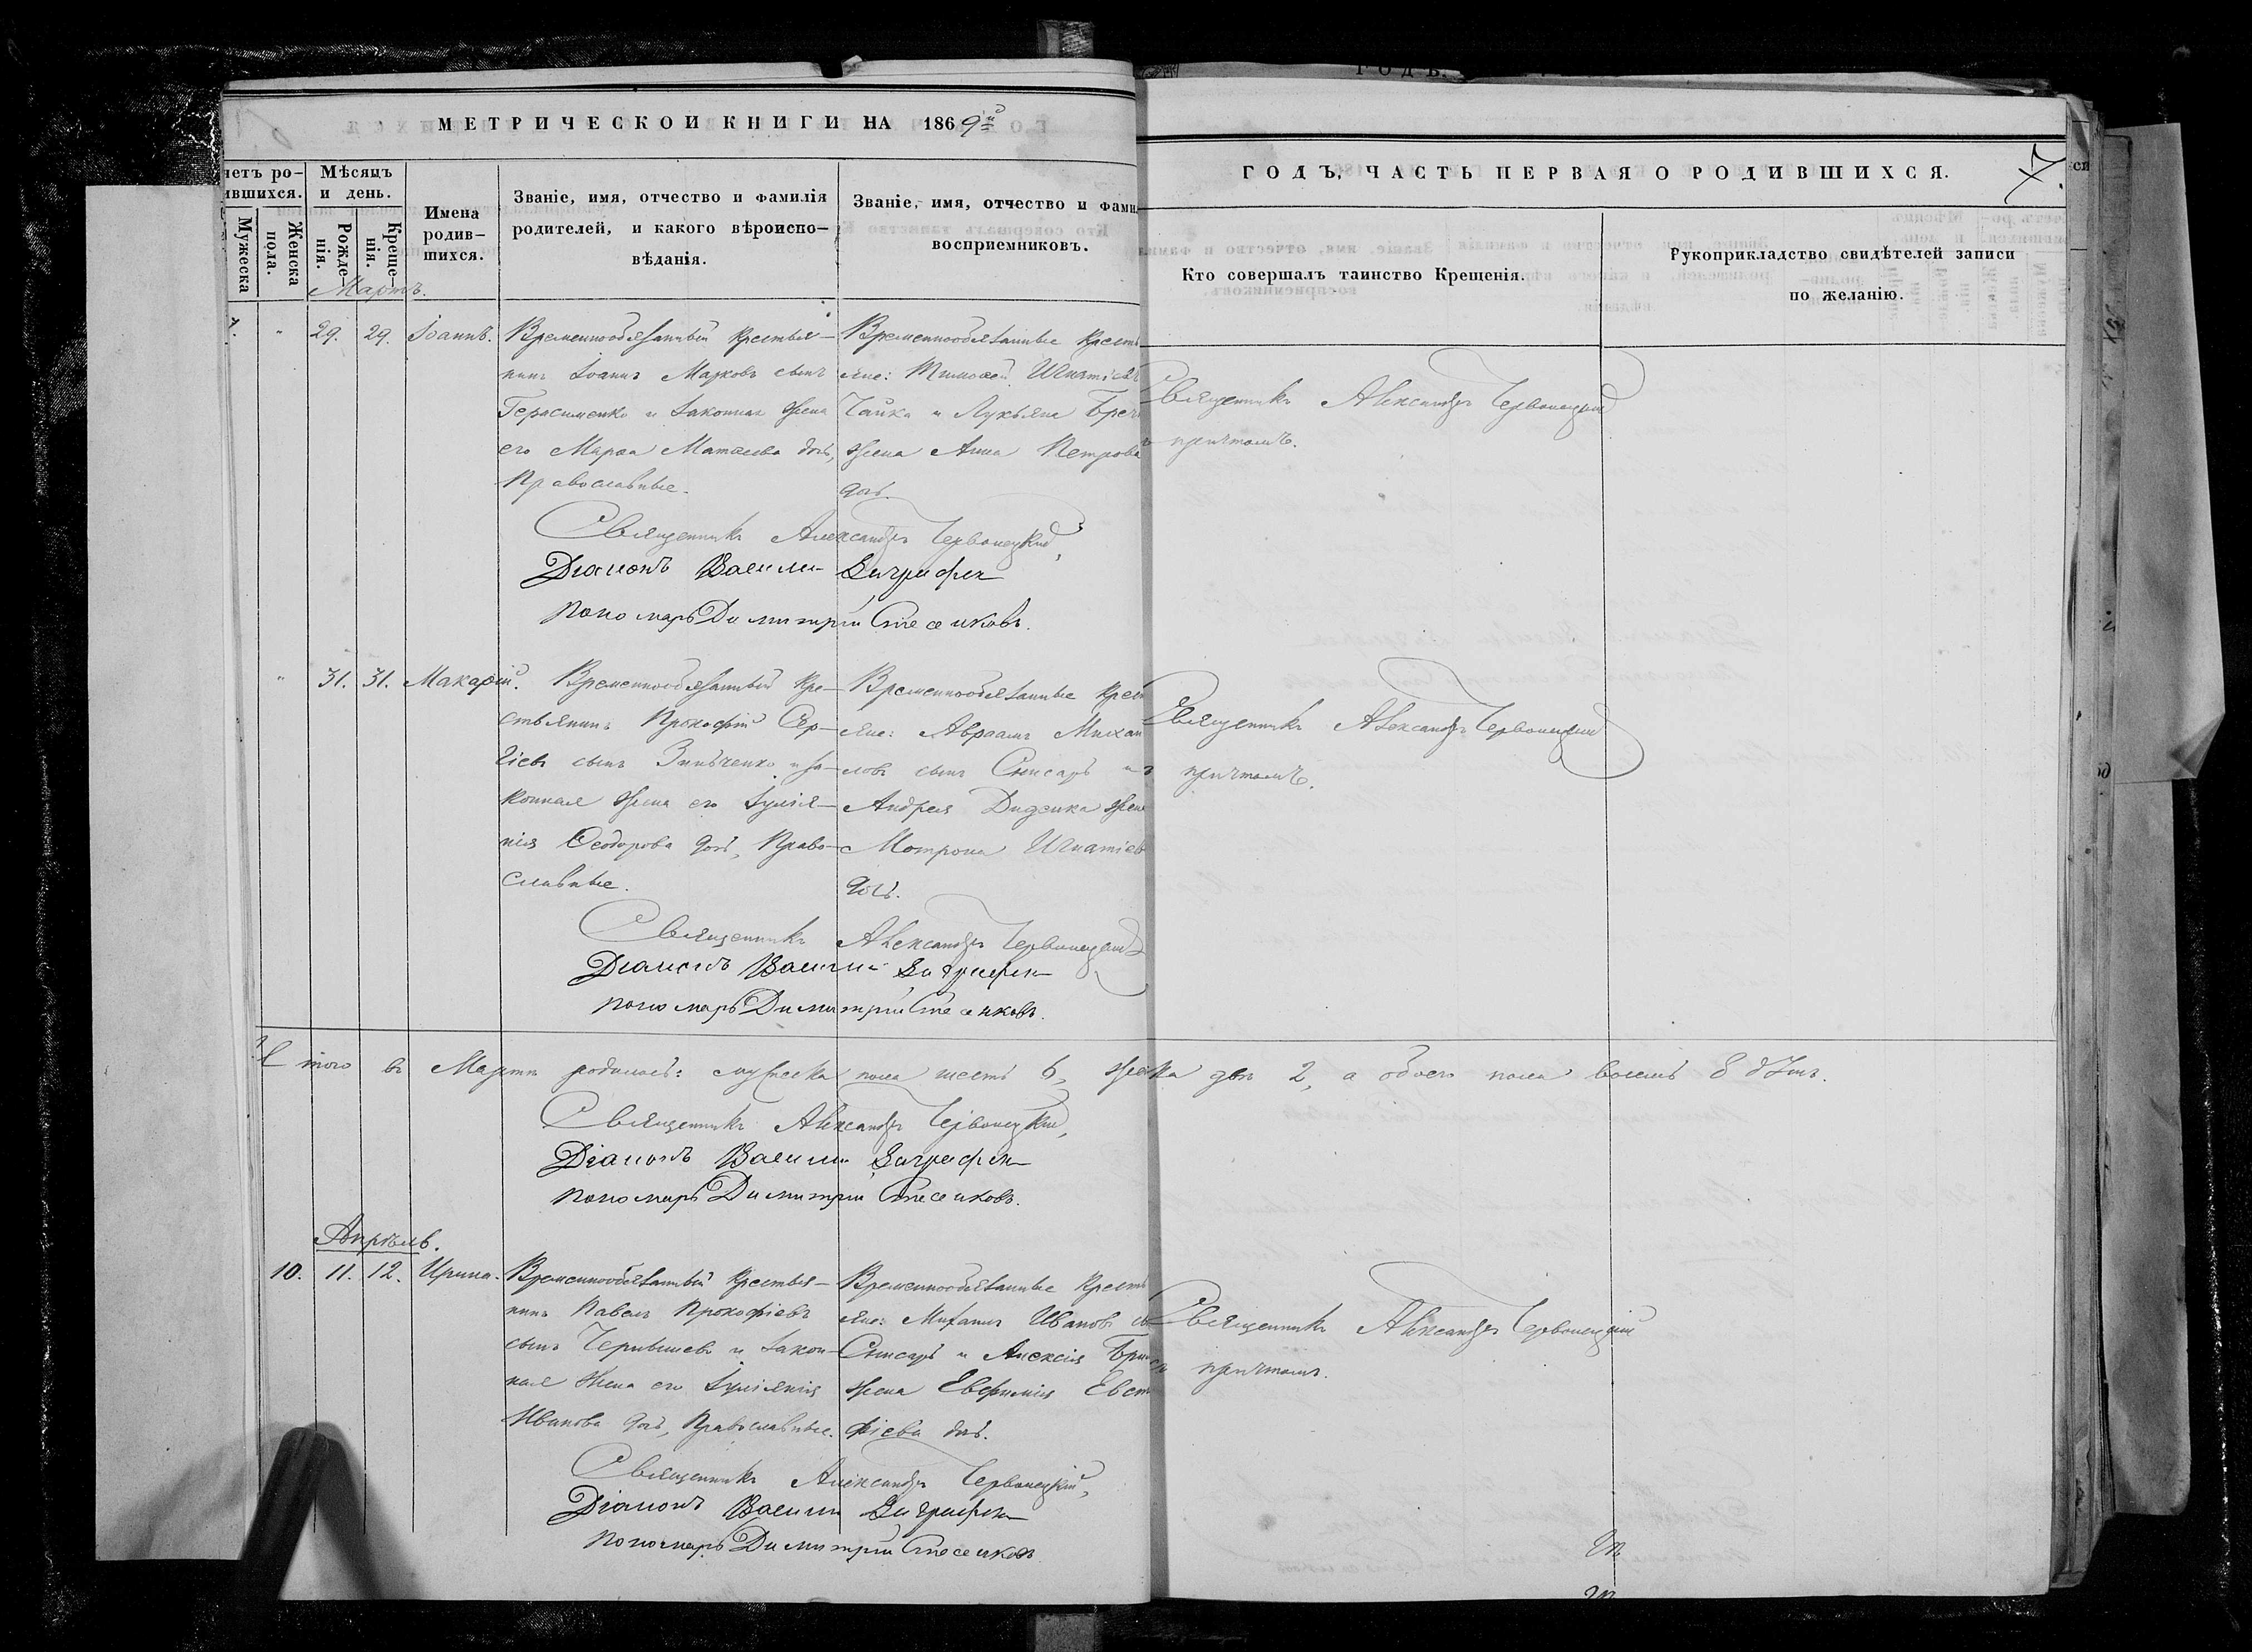 МЕТРИЧЕСКОЙ КНИГИ НА 1869й
ГОДЪ, ЧАСТЬ ПЕРВАЯ О РОДИВШИХСЯ.
7.
четъ ро-
ившихся.
Мужеска
пола.
Женска
Мѣсяцъ
и день.
Рожде-
нія.
Креще-
нія.
Имена
родив-
шихся.
Званіе, имя, отчество и фамилія
родителей, и какого вѣроиспо-
вѣданія.
Званіе, имя, отчество и фами
воспріемниковъ.
Кто совершалъ таинство Крещенія.
Рукоприкладство свидѣтелей записи
по желанію.
Мартъ.
7. " 29. 29. Іоаннъ.
Временнообязанный крестья-
нинъ Іоаннъ Марковъ сынъ
Герасименко и законная жена
его Марѳа Матѳеева дочь,
Православные.
Временнообязанные кресть
яне: Тимоѳей Игнатіевъ
Чайка и Лукьяна
жена Анна Петрова
дочь.
Священникъ Александръ Червонецкій
съ причтомъ.
Священникъ Александръ Червонецкій,
Діаконъ Василій
Пономарь Димитрій Стесенковъ.
" 31. 31. Макарій.
Временнообязанный кре-
стьянинъ Прокофій Сер-
гіевъ сынъ Зинченко и за-
конная жена его Іуліа-
нія Ѳеодорова дочь, Право-
славные.
Временнообязанные крест
яне: Авраамъ Михаи
ловъ сынъ Слисарь и
Андрея Диденка жена
Мотрона Игнатіев
дочь.
Священникъ Александръ Червонецкій
съ причтомъ.
Священникъ Александръ Червонецкій
Діаконъ Василій
Пономарь Димитрій Стесенковъ.
Итого въ Мартѣ родилось: мужеска пола шесть 6, женска двѣ 2, а обоего пола восемь 8 душъ.
Священникъ Александръ Червонецкій,
Діаконъ Василій
Пономарь Димитрій Стесенковъ.
Апрѣль.
10. 11. 12. Ирина.
Временнообязанный крестья-
нинъ Павелъ Прокофіевъ
сынъ Чернышевъ и закон-
ная жена его Іуліанія
Иванова дочь, Православные.
Временнообязанные кресть
яне: Михаилъ Ивановъ сы
Слисарь и Алексія
жена Евфимія Евст
фіева дочь.
Священникъ Александръ Червонецкій
съ причтомъ.
Священникъ Александръ Червонецкій,
Діаконъ Василій
Пономарь Димитрій Стесенковъ